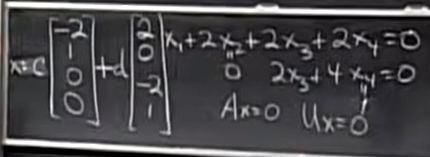 x = c [-2 1 0 0] + d [2 0 -2 1]
x₁ + 2x₂ + 2x₃ + 2x₄ = 0
0 2x₃ + 4x₄ = 0
1
Ax=0 Ux=0